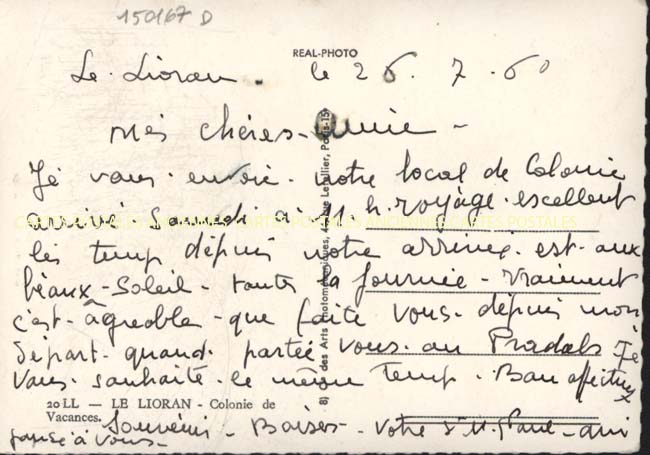 150167 D
REAL-PHOTO
Le Lioran - le 26. 7. 60
Mes chères - Amie -
Je vous - envoie - notre local de Colonie
arrivé Samedi à 11 h. voyage - excellent
CARTES POSTALES ANCIENNES CARTES POSTALES ANCIENNES CARTES POSTALES
les temp depuis notre arrivée - est - aux
béaux - Soleil - toutes la journée - vraiment
c'est - âgréable - que faite vous - depuis mon
départ - quand partée vous - au Pradals Je
vous - souhaite - le même temp - Bon affectueux
20 LL — LE LIORAN - Colonie de
Vacances.
Souvenir - Baises - Votre - ami
pense à vous -
8) des Arts Photomécaniques, Rue Letellier, Paris-15e